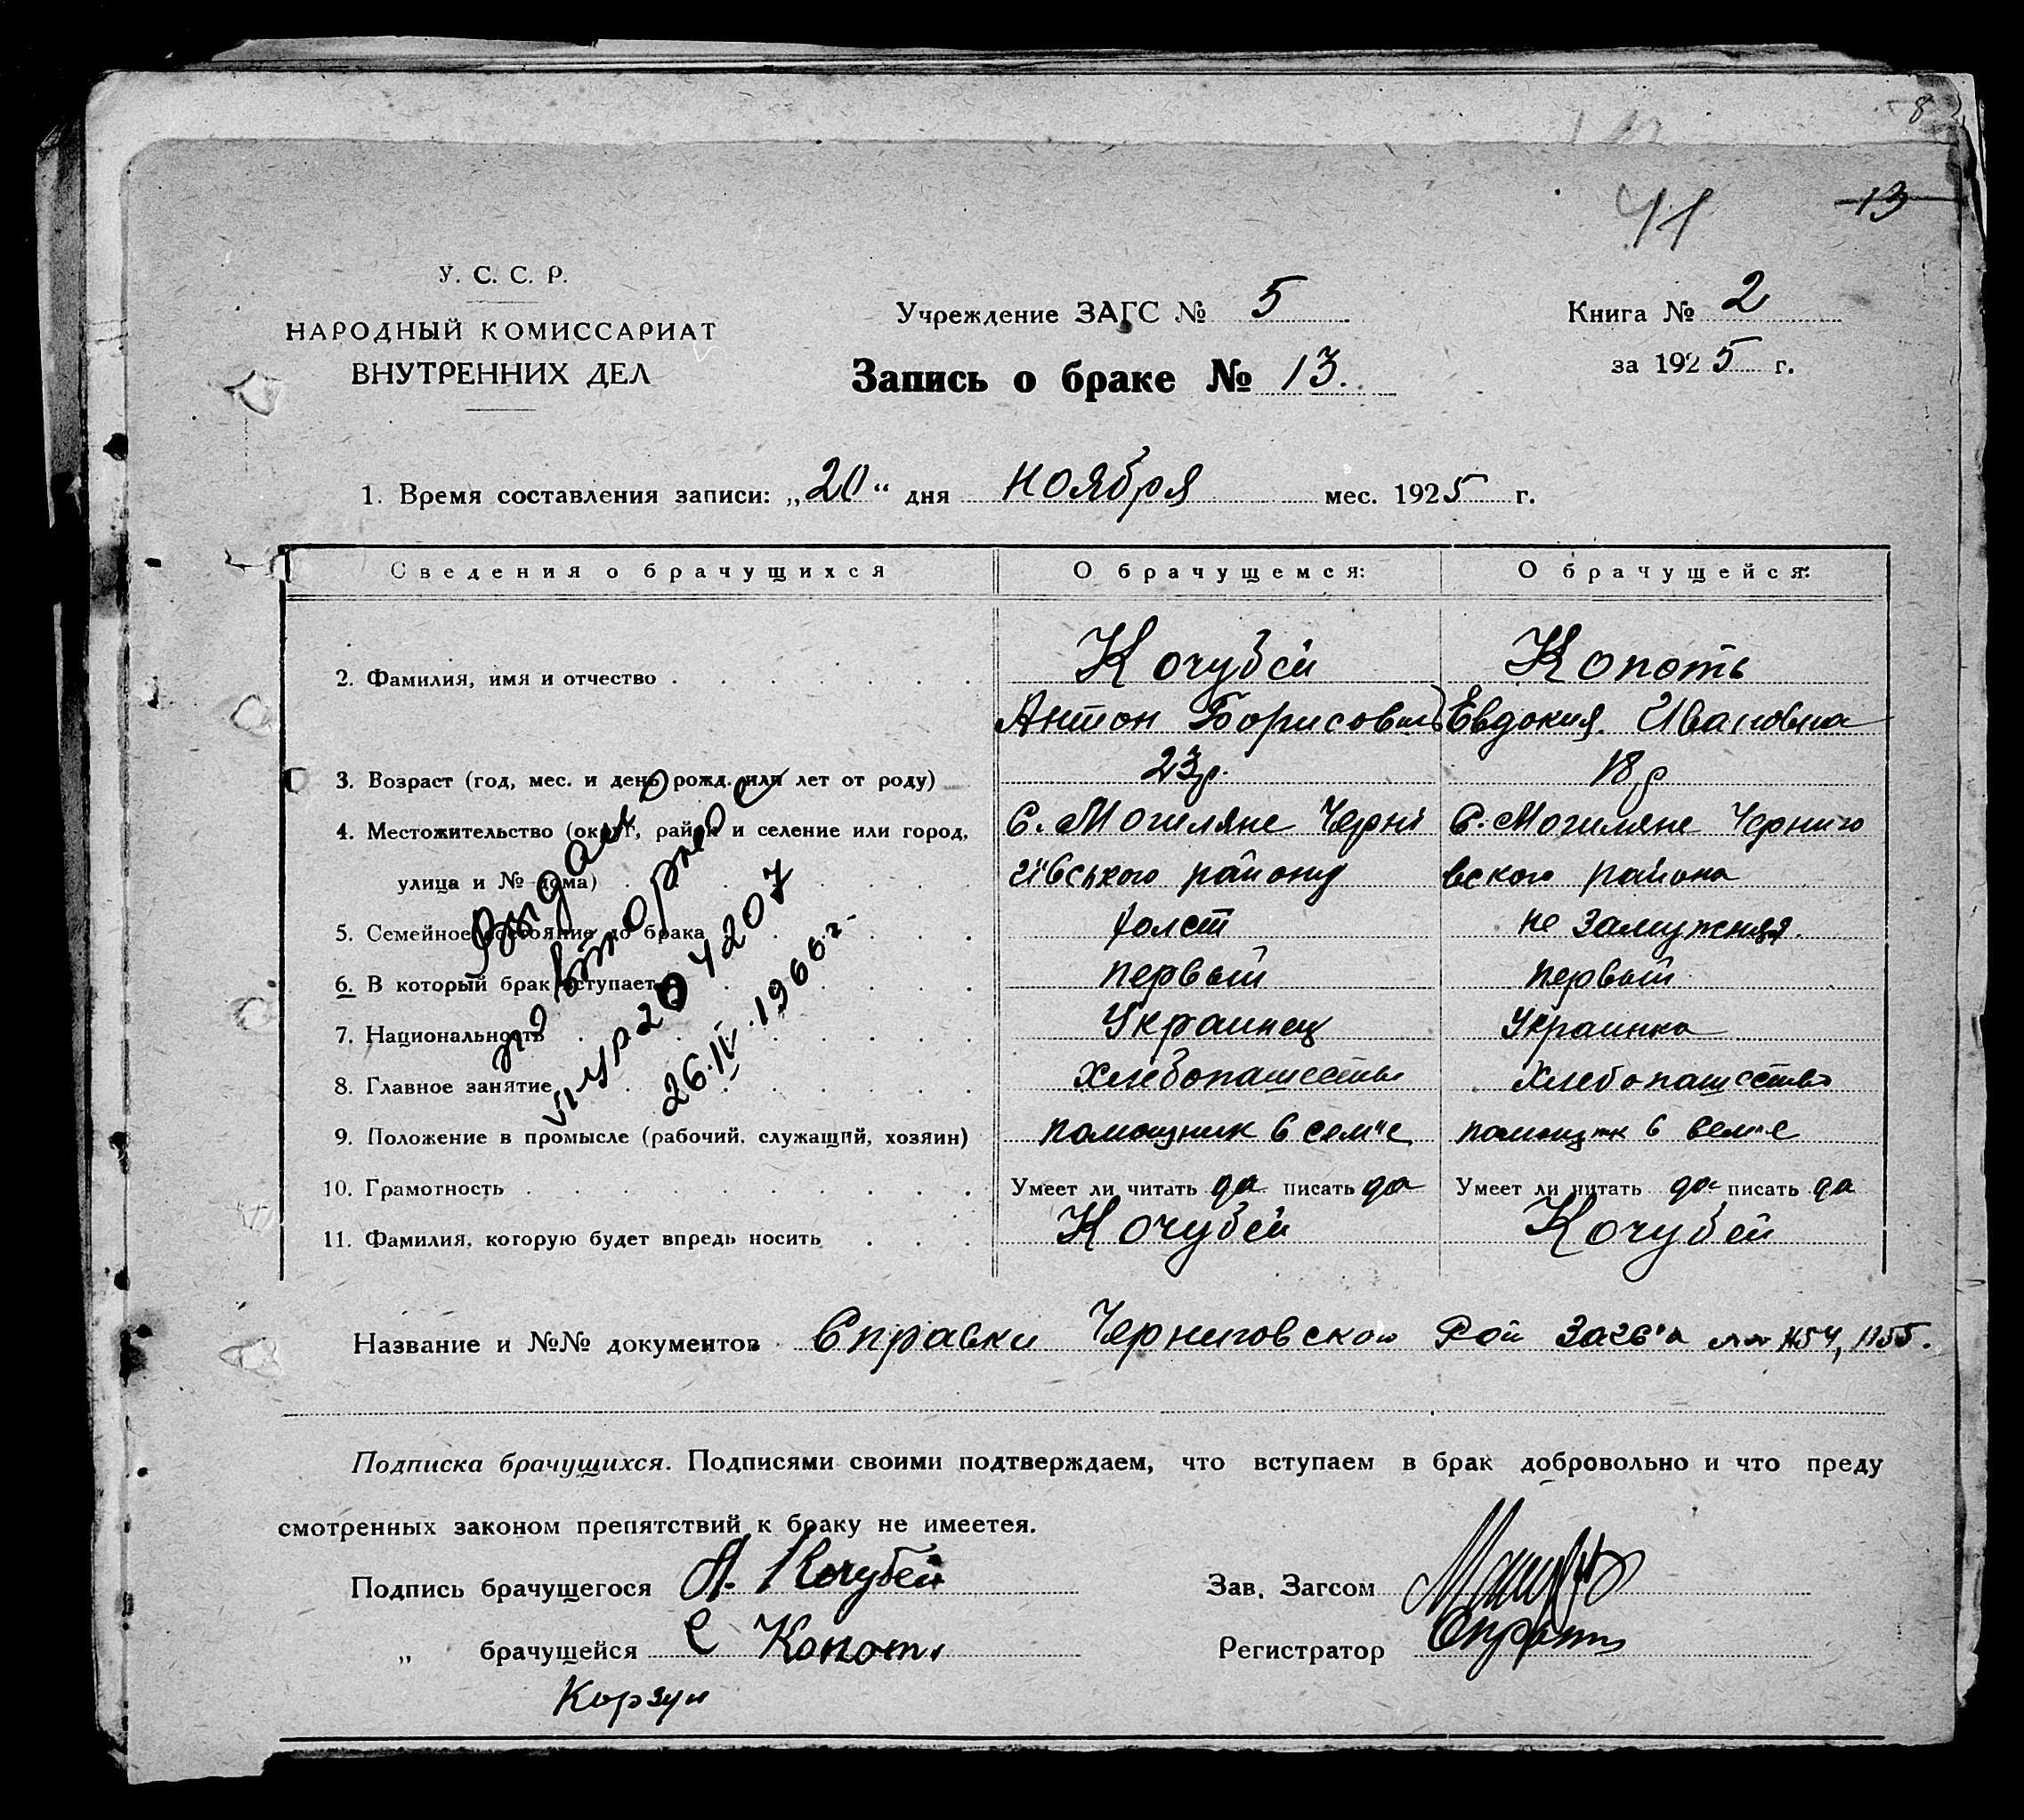 8
41
13
У. С. С. Р.
НАРОДНЫЙ КОМИССАРИАТ
ВНУТРЕННИХ ДЕЛ
Учреждение ЗАГС № 5
Книга № 2
Запись о браке № 13.
за 1925 г.
1. Время составления записи: „20“ дня ноября мес. 1925 г.
Сведения о брачущихся О брачущемся: О брачущейся:
2. Фамилия, имя и отчество Кочубей Копоть
Антон Борисович Евдокия Ивановна
3. Возраст (год, мес. и день рожд. или лет от роду) 23р. 18р
4. Местожительство (округ, район и селение или город, С. Могиляне Черні С. Могиляне Черниго
улица и № дома) гівського району вского района
5. Семейное состояние до брака холст не замужняя.
6. В который брак вступает первый первый
7. Национальность Украинец Украинка
8. Главное занятие Хлебопашество Хлебопашество
9. Положение в промысле (рабочий, служащий, хозяин) помощник в сем'е помощник в сем'е
10. Грамотность Умеет ли читать да писать да Умеет ли читать да писать да
11. Фамилия, которую будет впредь носить Кочубей Кочубей
Выдано
повторное
20 4207
26.IV.1966 г
Название и №№ документов Справки Черниговского Рай Загс'а №№ 1154, 1155.
Подписка брачущихся. Подписями своими подтверждаем, что вступаем в брак добровольно и что преду
смотренных законом препятствий к браку не имеетея.
Подпись брачущегося А. Кочубей
Зав. Загсом
„ брачущейся Е Копоть
Регистратор
Корзун